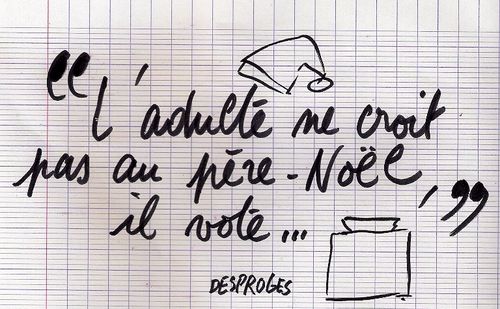 “L'adulte ne croit
pas au père-Noël,”
il vote...
DESPROGES